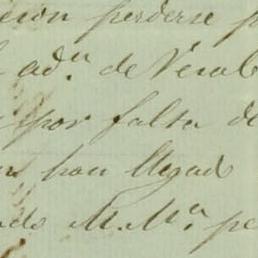 eron perderse p
adn. de Verab
por falta de
han llegad
ndo M. Ma. pe